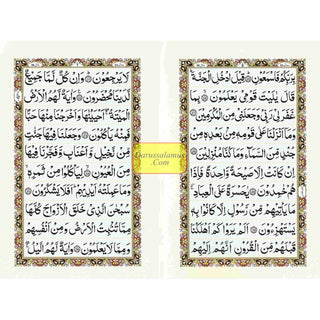 بِرَبِّكُمْ فَاسْمَعُوْنِ ۞ قِيْلَ ادْخُلِ الْجَنَّةَ
قَالَ يٰلَيْتَ قَوْمِيْ يَعْلَمُوْنَ ۞ بِمَا
غَفَرَلِيْ رَبِّيْ وَجَعَلَنِيْ مِنَ الْمُكْرَمِيْنَ ۞
وَمَآ اَنْزَلْنَا عَلٰى قَوْمِهٖ مِنْۢ بَعْدِهٖ مِنْ
جُنْدٍ مِّنَ السَّمَآءِ وَمَا كُنَّا مُنْزِلِيْنَ ۞
اِنْ كَانَتْ اِلَّا صَيْحَةً وَّاحِدَةً فَاِذَا
هُمْ خٰمِدُوْنَ ۞ يٰحَسْرَةً عَلَى الْعِبَادِ
مَا يَاْتِيْهِمْ مِّنْ رَّسُوْلٍ اِلَّا كَانُوْا بِهٖ
يَسْتَهْزِءُوْنَ ۞ اَلَمْ يَرَوْا كَمْ اَهْلَكْنَا
قَبْلَهُمْ مِّنَ الْقُرُوْنِ اَنَّهُمْ اِلَيْهِمْ
لَا يَرْجِعُوْنَ ۞ وَاِنْ كُلٌّ لَّمَّا جَمِيْعٌ
لَّدَيْنَا مُحْضَرُوْنَ ۞ وَاٰيَةٌ لَّهُمُ الْاَرْضُ
الْمَيْتَةُ اَحْيَيْنٰهَا وَاَخْرَجْنَا مِنْهَا حَبًّا
فَمِنْهُ يَاْكُلُوْنَ ۞ وَجَعَلْنَا فِيْهَا جَنّٰتٍ
مِّنْ نَّخِيْلٍ وَّاَعْنَابٍ وَّفَجَّرْنَا فِيْهَا
مِنَ الْعُيُوْنِ ۞ لِيَاْكُلُوْا مِنْ ثَمَرِهٖ
وَمَا عَمِلَتْهُ اَيْدِيْهِمْ اَفَلَا يَشْكُرُوْنَ ۞
سُبْحٰنَ الَّذِيْ خَلَقَ الْاَزْوَاجَ كُلَّهَا
مِمَّا تُنْۢبِتُ الْاَرْضُ وَمِنْ اَنْفُسِهِمْ
وَمِمَّا لَا يَعْلَمُوْنَ ۞ وَاٰيَةٌ لَّهُمُ الَّيْلُ
Darussalamus
.Com